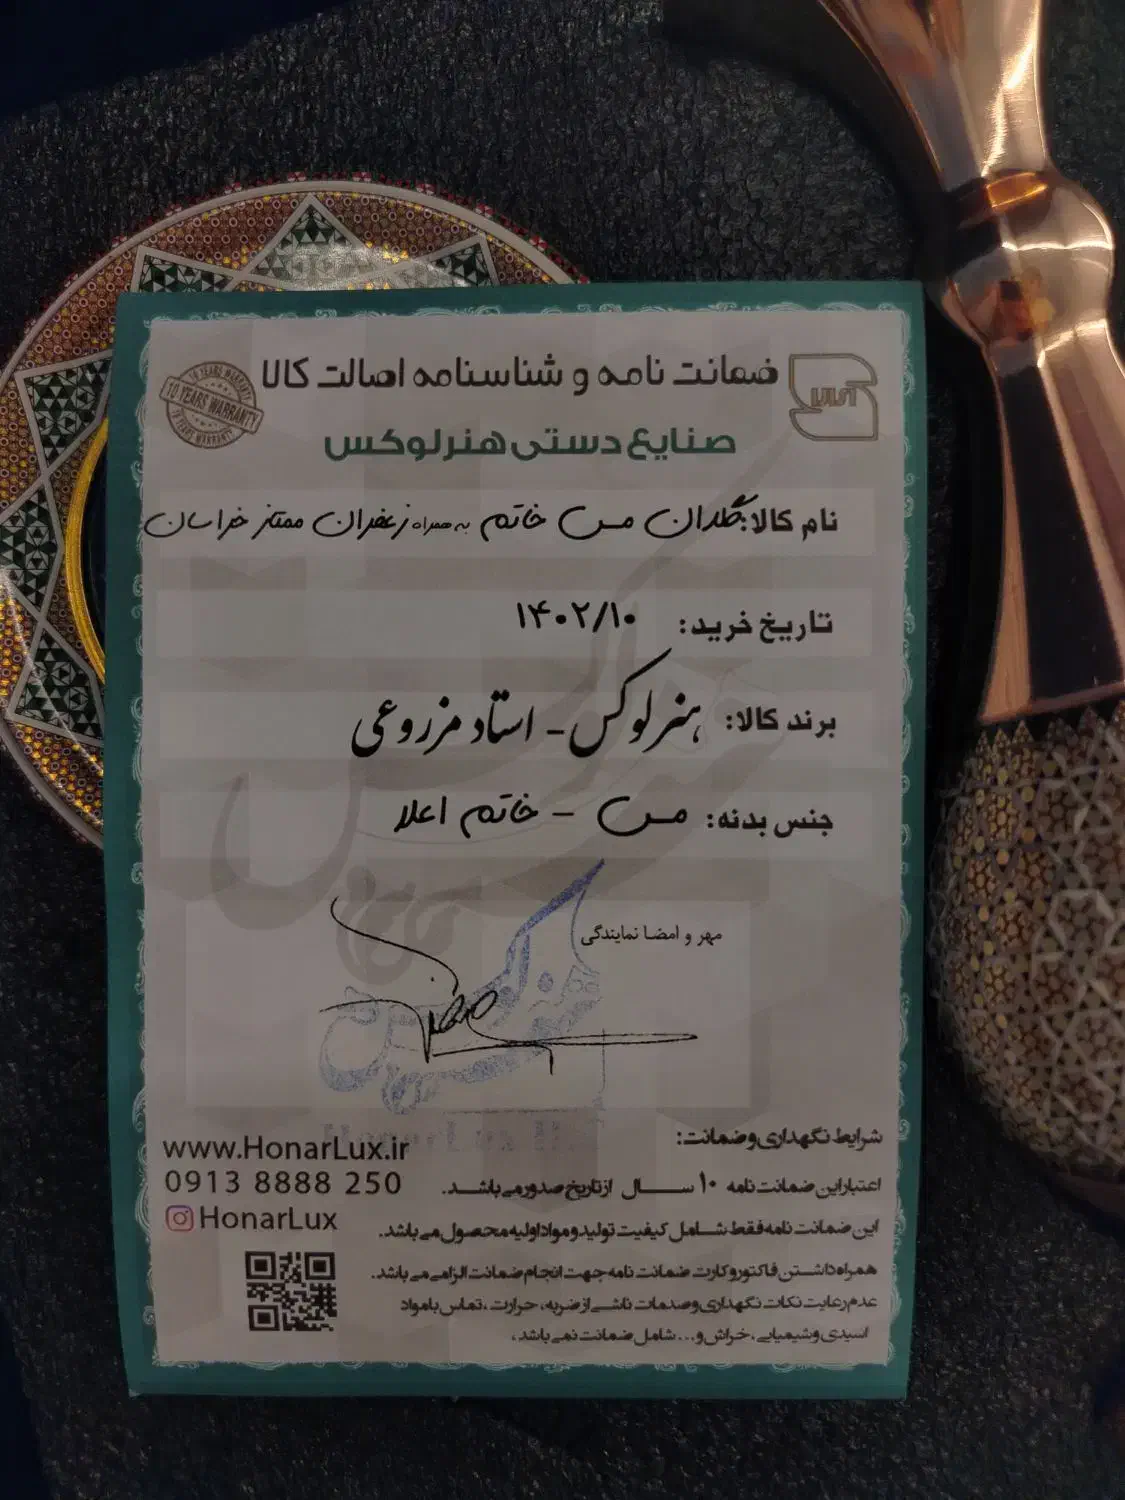 ضمانت نامه و شناسنامه اصالت کالا
10 YEARS WARRANTY
صنایع دستی هنرلوکس
نام کالا: گلدان مس خاتم به همراه زعفران ممتاز خراسان
تاریخ خرید: ۱۴۰۲/۱۰
برند کالا: هنرلوکس - استاد مزروعی
جنس بدنه: مس - خاتم اعلا
مهر و امضا نمایندگی
شرایط نگهداری و ضمانت:
اعتبار این ضمانت نامه ۱۰ سال از تاریخ صدور می باشد.
این ضمانت نامه فقط شامل کیفیت تولید و مواد اولیه محصول می باشد.
همراه داشتن فاکتور و کارت ضمانت نامه جهت انجام ضمانت الزامی می باشد.
عدم رعایت نکات نگهداری و صدمات ناشی از ضربه، حرارت، تماس با مواد
اسیدی و شیمیایی، خراش و... شامل ضمانت نمی باشد،
www.HonarLux.ir
0913 8888 250
HonarLux